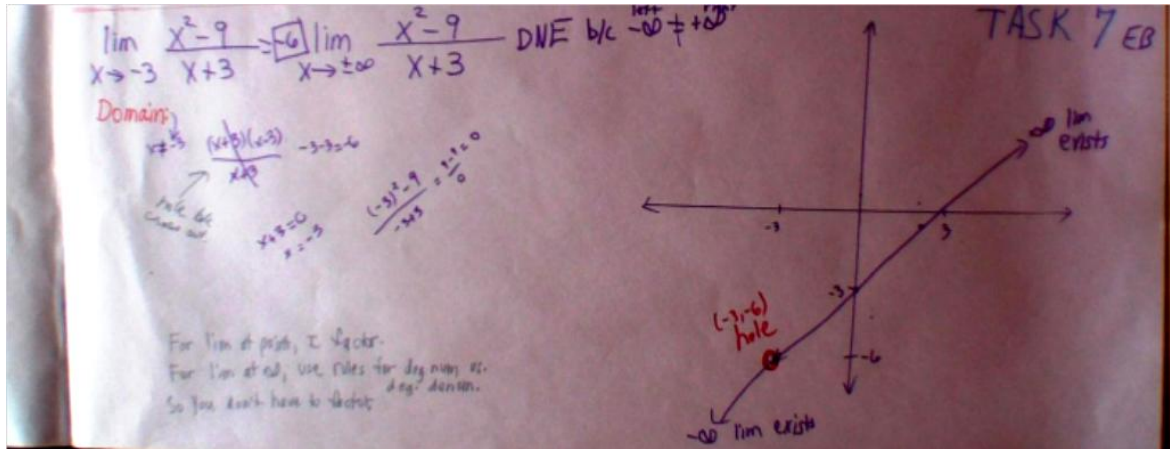 lim x→-3 x²-9 / x+3 = -6 lim x→±∞ x²-9 / x+3 DNE b/c left -∞ ≠ +∞
TASK 7 EB
Domain:
x≠-3 (x+3)(x-3) / x+3 -3-3=-6
hole b/c
x+3=0
x=-3
(-3)²-9 / -3+3 = 9-9=0 / 0
For lim at point, I factor.
For lim at ∞, use rules for deg num vs.
deg. denom.
So you don't have to factor
∞ lim
exists
-3
3
-3
(-3,-6)
hole
-6
-∞ lim exists